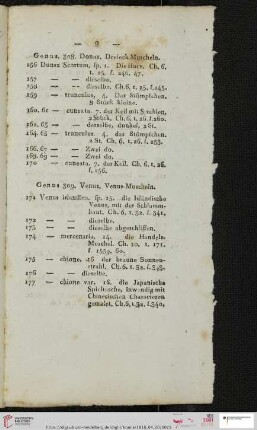 — 8 —
Genus. 308. Donax, Dreieck Muscheln.
156 Donax Scortum, sp. 1. Die Ch. 6,
t. 25, f. 246. 47.
157 — — dieselbe.
158 — — dieselbe. Ch. 6, t. 25, f. 243.
159 — trunculus, 4. Das Stümpfchen.
8 Stück kleine.
160. 61 — cuneata. 7. der Keil mit Strahlen,
2 Stück, Ch. 6, t. 26, f. 260.
162. 63 — derselbe, dunkel, 2 St.
164. 65 — trunculus, 4. das Stümpfchen.
2 St. Ch. 6, t. 26, f. 253.
166. 67 — Zwei do.
168. 69 — Zwei do.
170 — cuneata. 7. der Keil. Ch. 6, t. 26,
f. 256.
Genus 309. Venus, Venus Muscheln.
171 Venus islandica. sp. 15. die Isländische
Venus, mit der
haut. Ch. 6, t. 32, f. 341.
172 — — dieselbe.
173 — — dieselbe abgeschliffen.
174 — mercenaria. 14. die Handels-
Muschel. Ch. 10, t. 171,
f. 1659. 60.
175 — chione. 16 der braune Sonnen-
strahl, Ch. 6, t. 32, f. 343.
176 — — dieselbe.
177 — chione var. 16. die Japanische
Spieltische, inwendig mit
Chinesischen Characteren
gemalet, Ch. 6, t. 32, f. 340,